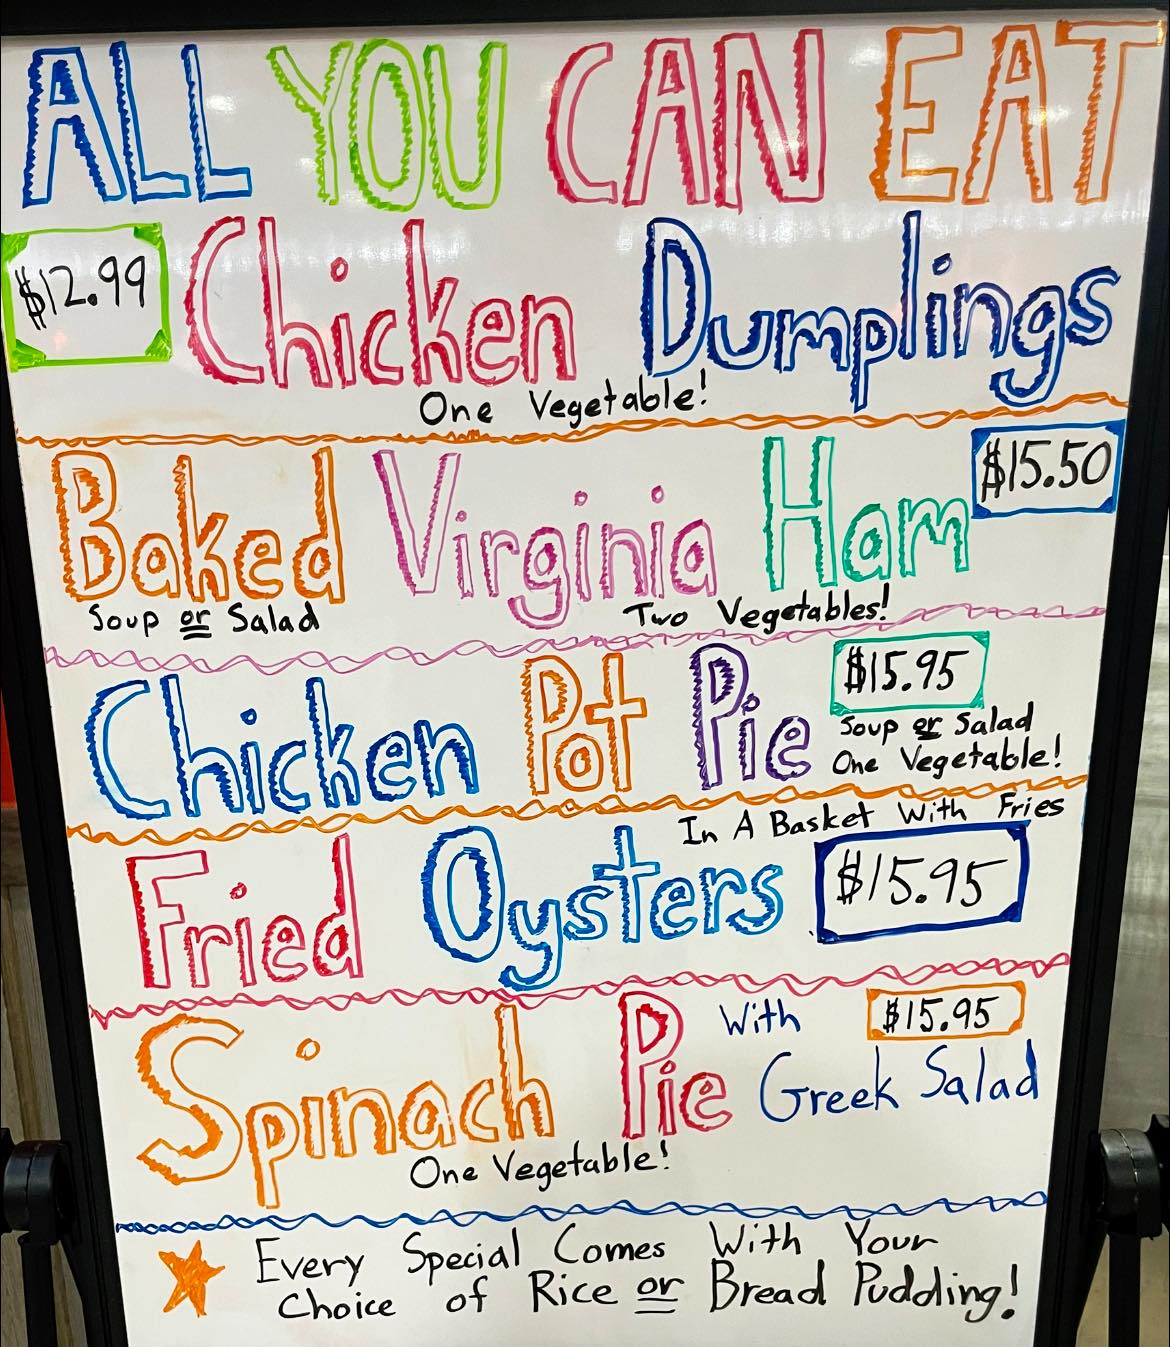 ALL YOU CAN EAT
$12.99 Chicken Dumplings
One Vegetable!
Baked Virginia Ham $15.50
Soup or Salad Two Vegetables!
Chicken Pot Pie $15.95
Soup or Salad
One Vegetable!
In A Basket With Fries
Fried Oysters $15.95
Spinach Pie With $15.95
Greek Salad
One Vegetable!
Every Special Comes With Your
Choice of Rice or Bread Pudding!